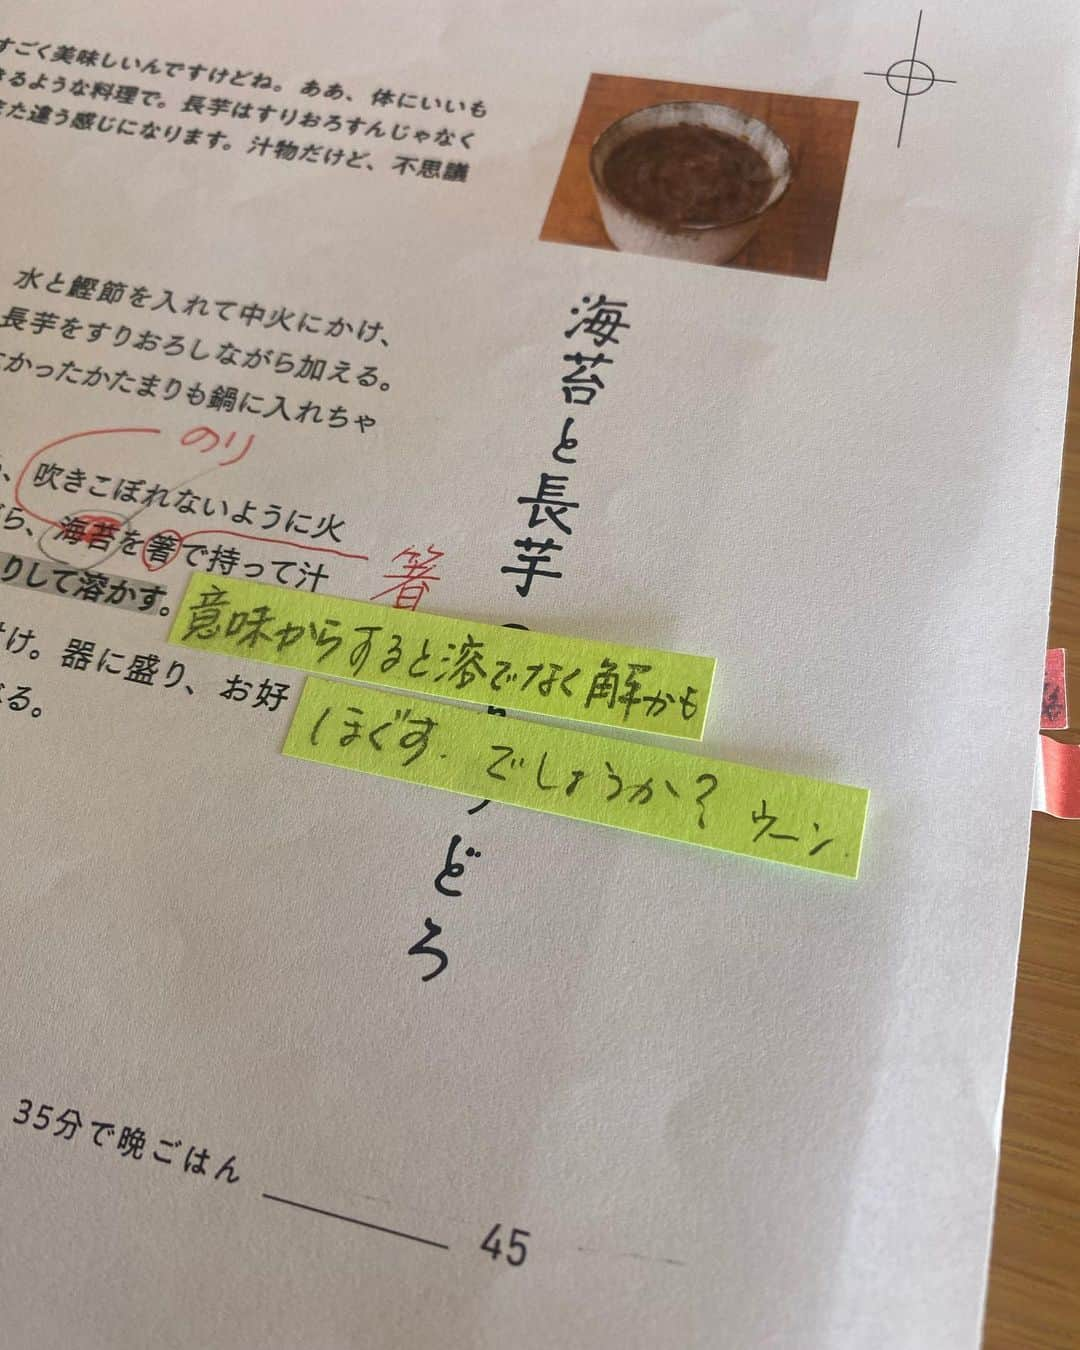 すごく美味しいんですけどね。ああ、体にいいも
るような料理で。長芋はすりおろすんじゃなく
た違う感じになります。汁物だけど、不思議
海苔と長芋
どろ
水と鰹節を入れて中火にかけ、
長芋をすりおろしながら加える。
かったかたまりも鍋に入れちゃ
のり
、吹きこぼれないように火
ら、海苔を箸で持って汁
箸
りして溶かす。
意味からすると溶でなく解かも
け。器に盛り、お好
ほぐす. でしょうか? ウーン.
る。
35分で晩ごはん
45